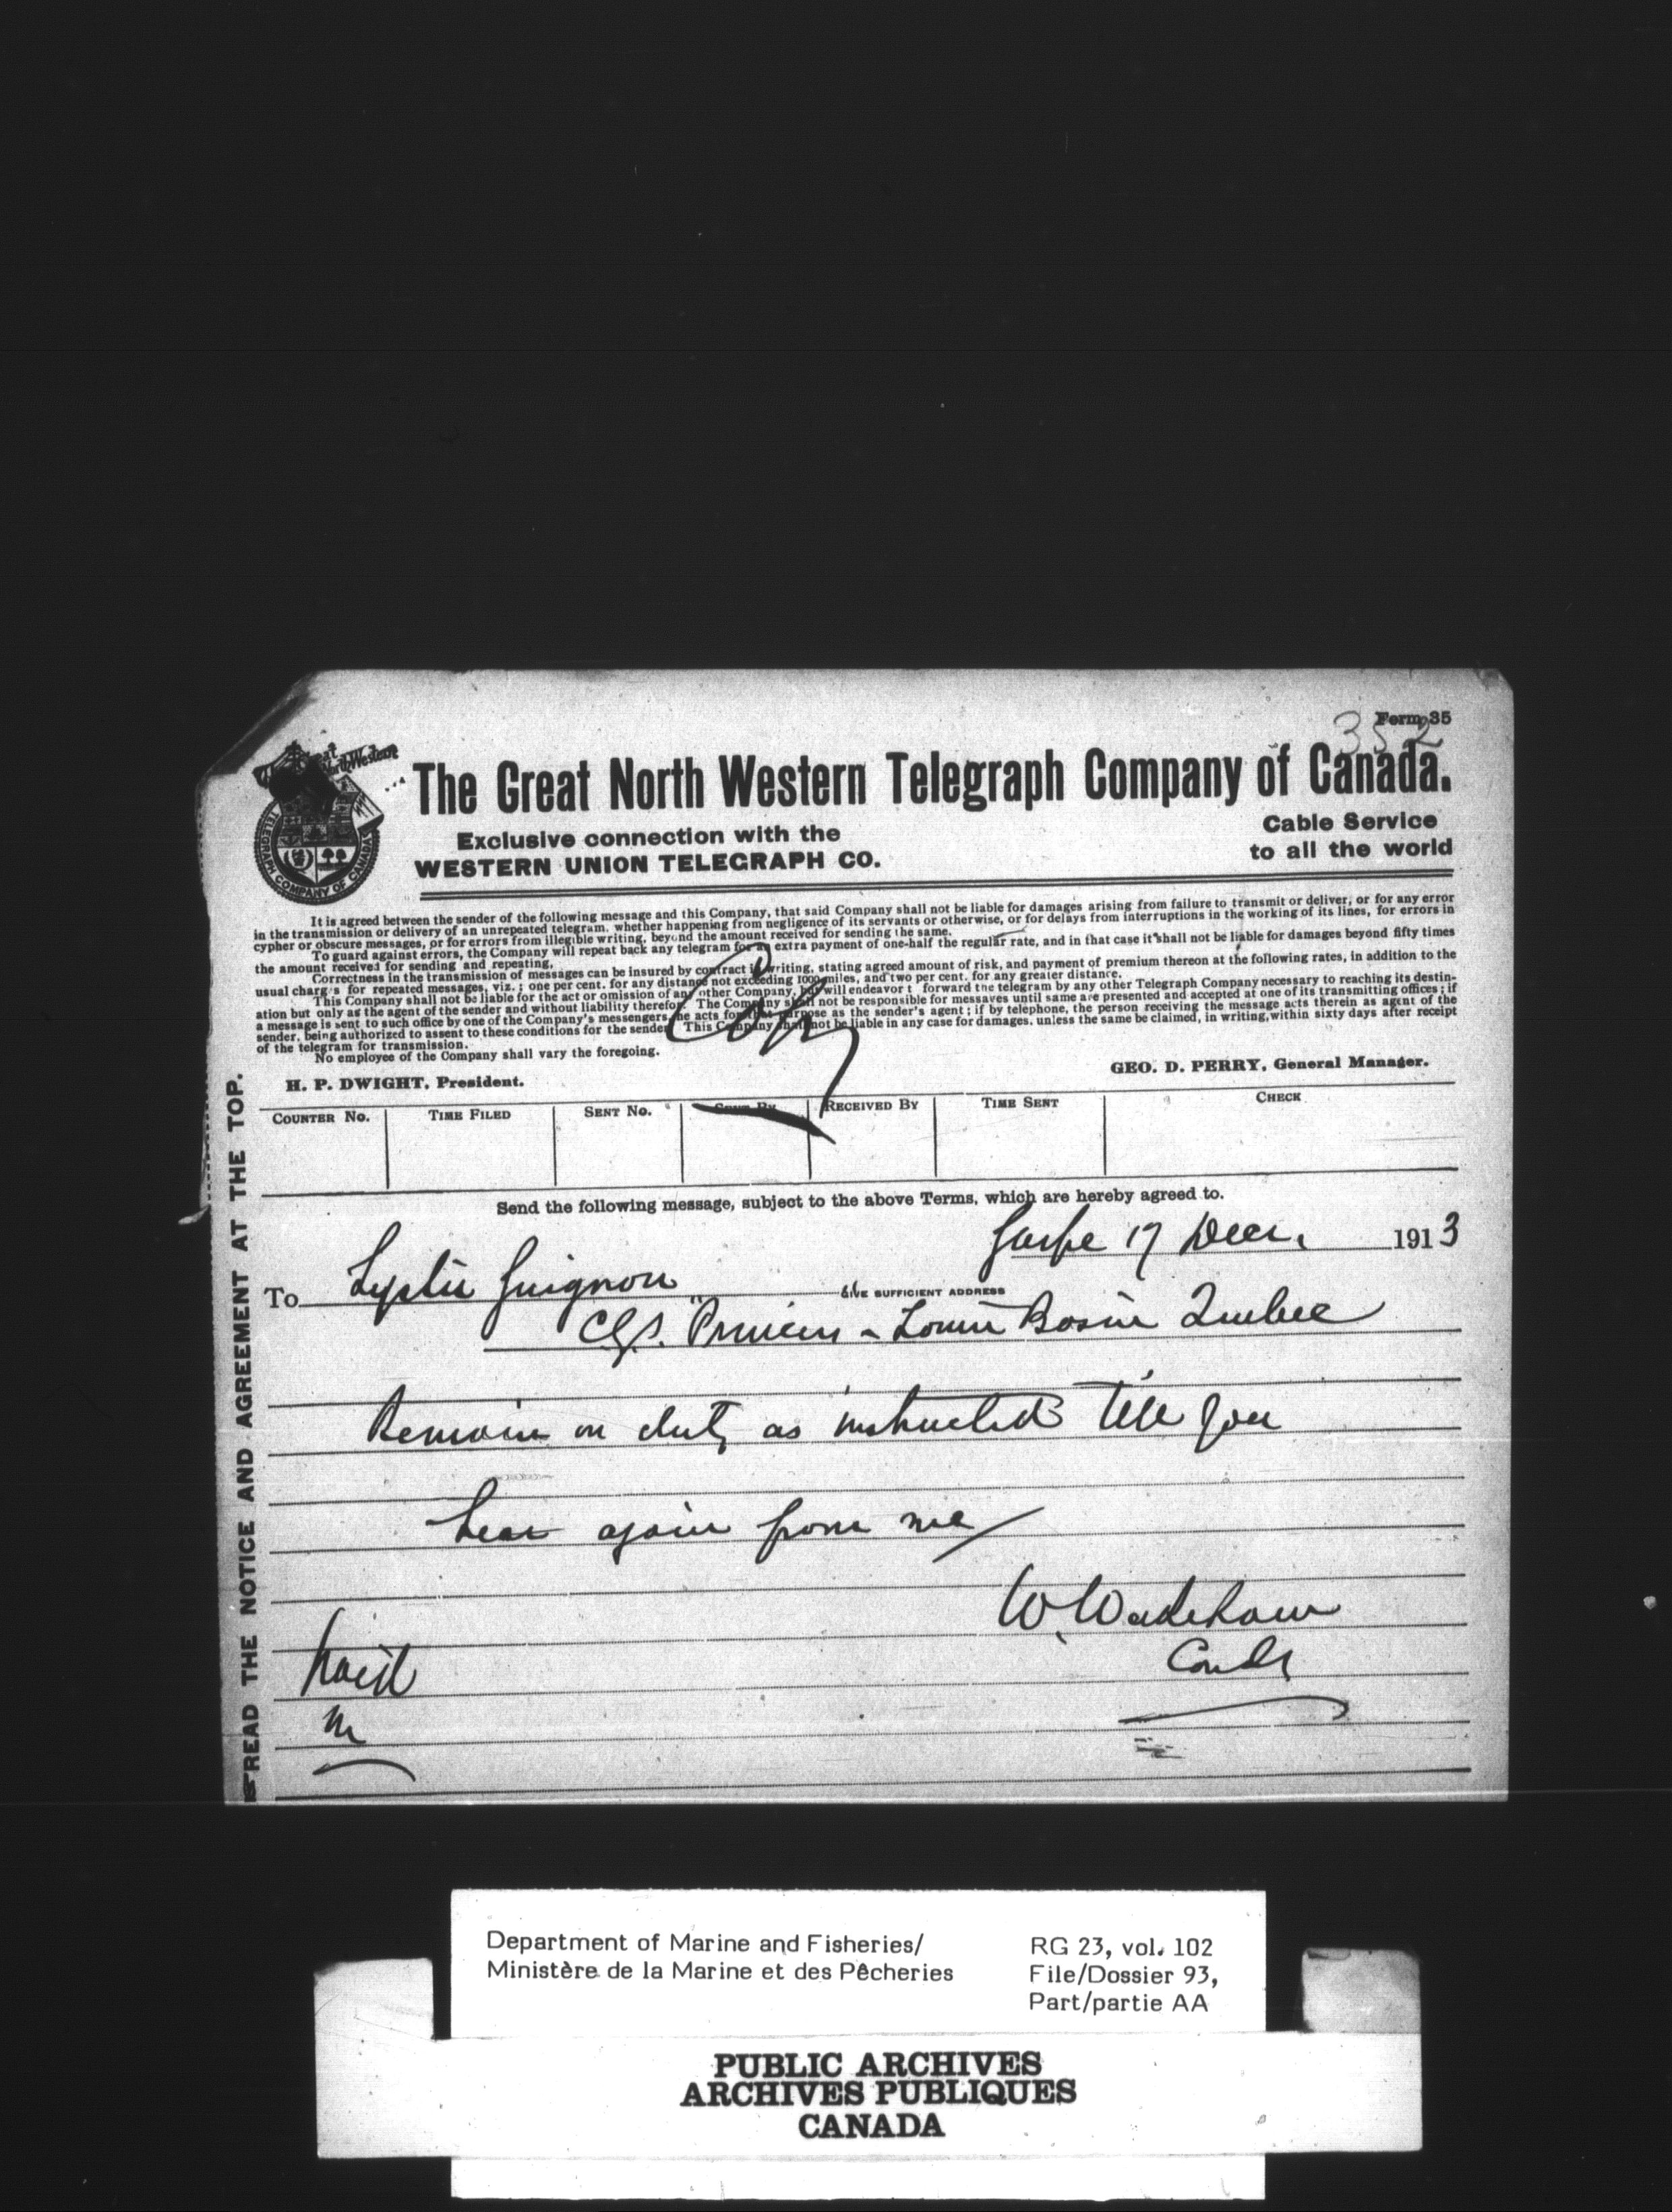 Form 35
352
The Great North Western Telegraph Company of Canada.
Exclusive connection with the
WESTERN UNION TELEGRAPH CO.
Cable Service
to all the world
Great
North Western
TELEGRAPH COMPANY OF CANADA
It is agreed between the sender of the following message and this Company, that said Company shall not be liable for damages arising from failure to transmit or deliver, or for any error
in the transmission or delivery of an unrepeated telegram, whether happening from negligence of its servants or otherwise, or for delays from interruptions in the working of its lines, for errors in
cypher or obscure messages, or for errors from illegible writing, beyond the amount received for sending the same.
To guard against errors, the Company will repeat back any telegram for an extra payment of one-half the regular rate, and in that case it shall not be liable for damages beyond fifty times
the amount received for sending and repeating.
Correctness in the transmission of messages can be insured by contract in writing, stating agreed amount of risk, and payment of premium thereon at the following rates, in addition to the
usual charges for repeated messages, viz.; one per cent. for any distance not exceeding 1000 miles, and two per cent. for any greater distance.
This Company shall not be liable for the act or omission of any other Company, but will endeavor t forward the telegram by any other Telegraph Company necessary to reaching its destin-
ation but only as the agent of the sender and without liability therefor. The Company shall not be responsible for messages until same are presented and accepted at one of its transmitting offices; if
a message is sent to such office by one of the Company's messengers, he acts for that purpose as the sender's agent; if by telephone, the person receiving the message acts therein as agent of the
sender, being authorized to assent to these conditions for the sender. This Company shall not be liable in any case for damages, unless the same be claimed, in writing, within sixty days after receipt
of the telegram for transmission.
No employee of the Company shall vary the foregoing.
Copy
H. P. DWIGHT, President.
GEO. D. PERRY, General Manager.
COUNTER NO. TIME FILED SENT NO. SENT BY RECEIVED BY TIME SENT CHECK
Send the following message, subject to the above Terms, which are hereby agreed to.
Gaspe 17 Decr. 1913
To Guignon GIVE SUFFICIENT ADDRESS
CGS. "Princess - Louise Basin Quebec
Remain on duty as instructed till you
hear again from me
W. Wakeham
Comdr
Paid
M
READ THE NOTICE AND AGREEMENT AT THE TOP.
Department of Marine and Fisheries/
Ministère de la Marine et des Pêcheries
RG 23, vol. 102
File/Dossier 93,
Part/partie AA
PUBLIC ARCHIVES
ARCHIVES PUBLIQUES
CANADA